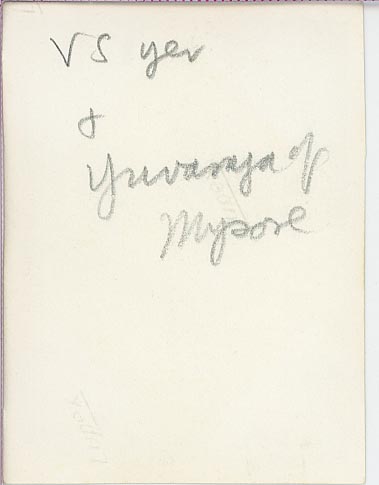 VS yer
&
Yuvaraja of
Mysore